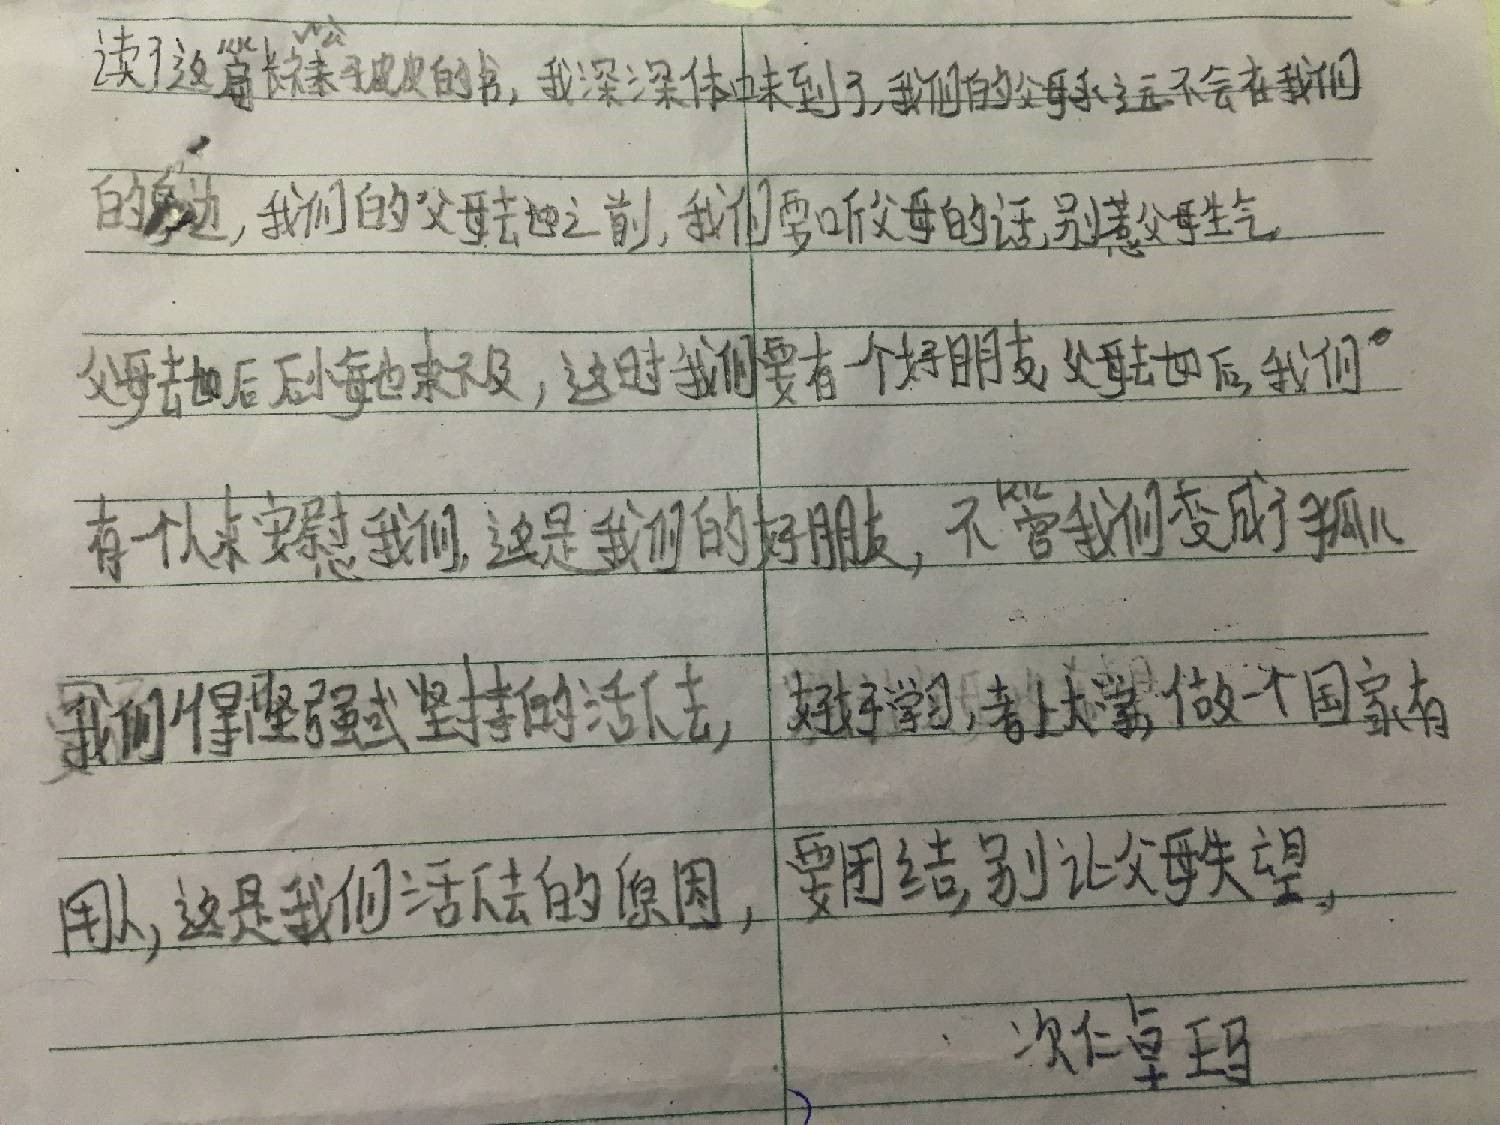 读了这篇长袜子皮皮的书，我深深体味到了，我们的父母永远不会在我们
的身边，我们的父母去世之前，我们要听父母的话，别惹父母生气，
父母去世后后悔也来不及，这时我们要有一个好朋友，父母去世后，我们
有一个人来安慰我们，这是我们的好朋友，不管我们变成了孤儿
我们得坚强或坚持的活下去，好好学习，考上大学，做一个国家有
用人，这是我们活下去的原因，要团结，别让父母失望，
次仁卓玛